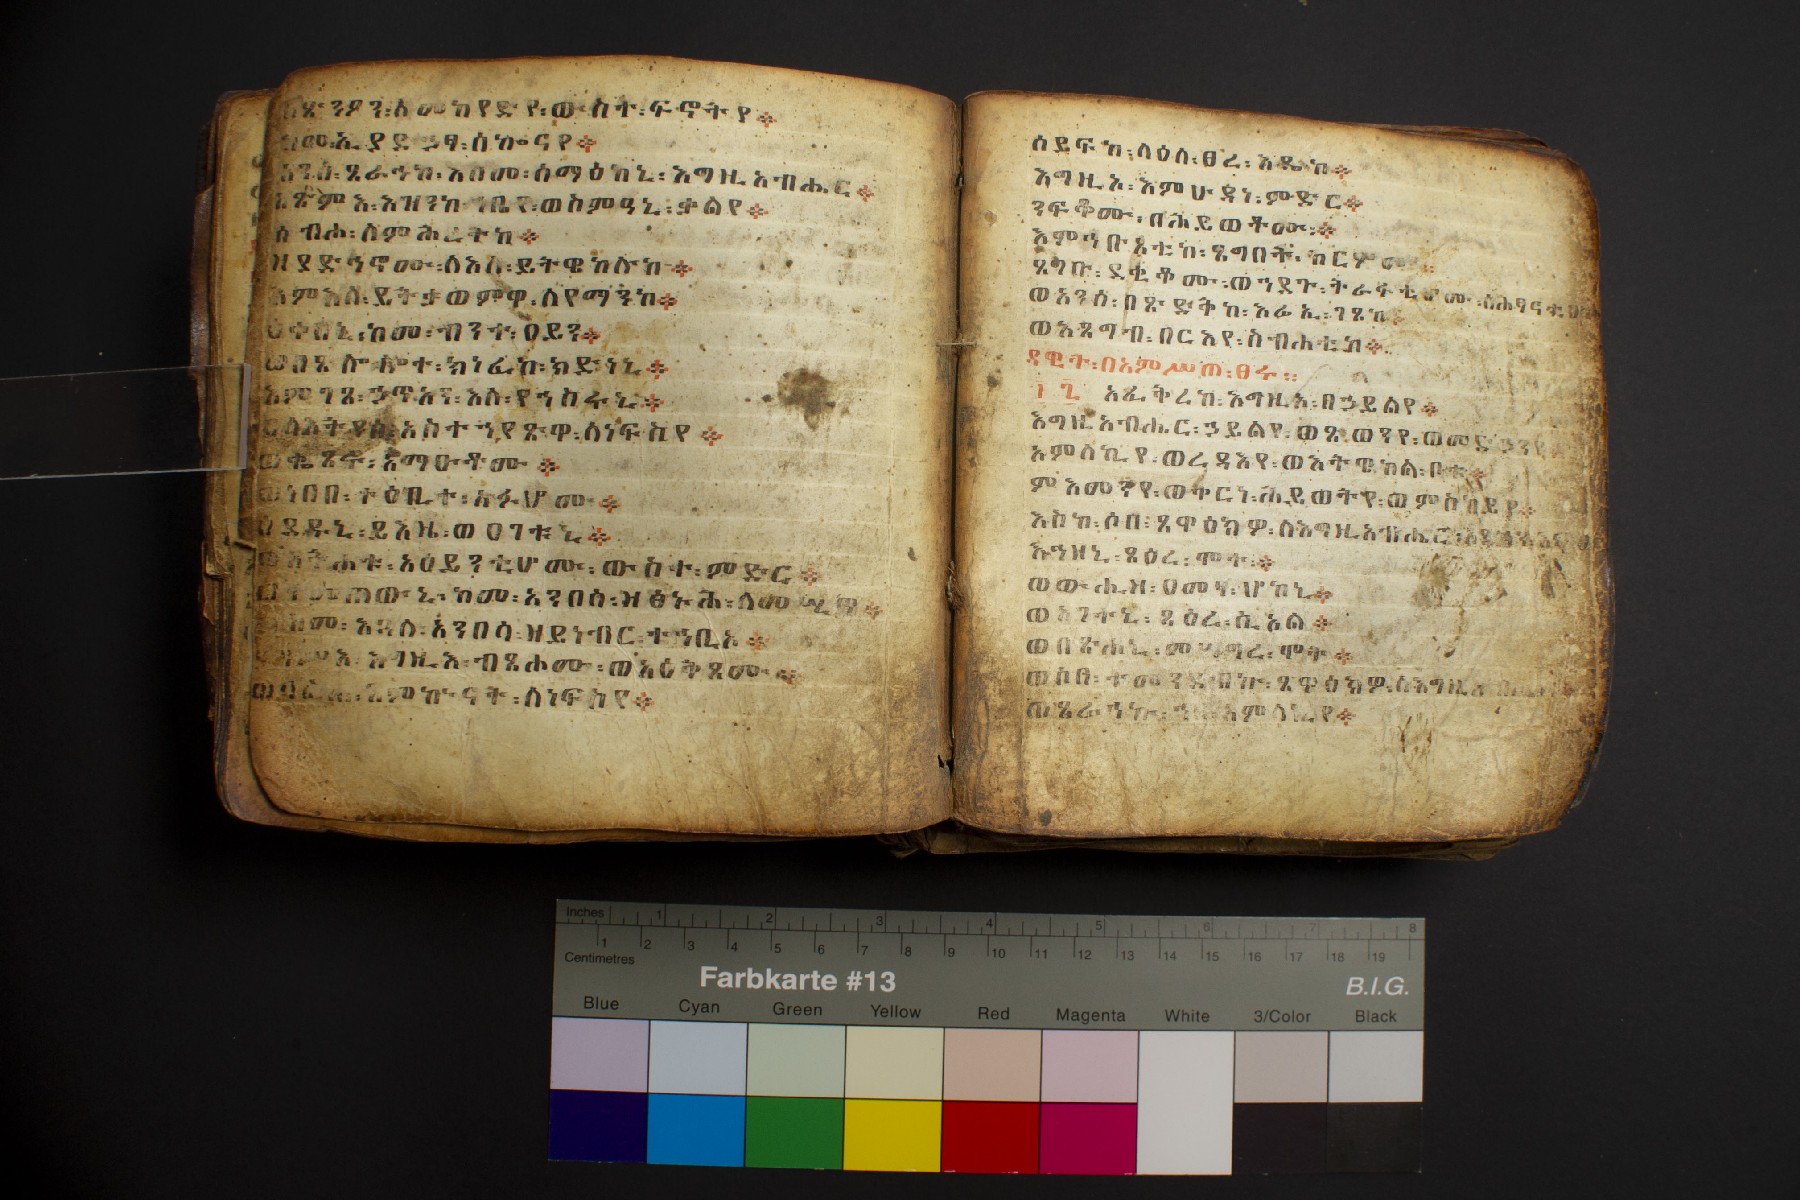 አጽንዖን፡ ለመከየድየ፡ ውስተ፡ ፍኖትየ፨
ከመ፡ ኢያድኃፃ፡ ሰኰናየ፨
አንሰ፡ ጸራኅኩ፡ እስመ፡ ሰማዕከኒ፡ እግዚአብሔር፨
አጽምእ፡ እዝነከ፡ ኀቤየ፡ ወስምዓኒ፡ ቃልየ፨
ሰብሖ፡ ለምሕረትከ፨
ዘያድኅኖሙ፡ ለእለ፡ ይትዌከሉከ፨
እምእለ፡ ይትቃወምዋ፡ ለየማንከ፨
ዕቀበኒ፡ ከመ፡ ብንተ፡ ዐይን፨
ወበጽላሎተ፡ ክነፊከ፡ ክድነኒ፨
እምገጸ፡ ኃጥአን፡ እለ፡ የኀስሩኒ፨
ጸላእትየሰ፡ አስተኀየጽዋ፡ ለነፍስየ፨
ወቈጸሩ፡ አማዑቶሙ፨
ወነበበ፡ ትዕቢተ፡ አፉሆሙ፨
ሰደዱኒ፡ ይእዜ፡ ወዐገቱኒ፨
ወአትሐቱ፡ አዕይንቲሆሙ፡ ውስተ፡ ምድር፨
ወተመጠውኒ፡ ከመ፡ አንበሳ፡ ዝፅኑሕ፡ ለመሢጥ፨
ወከመ፡ እጓለ፡ አንበሳ፡ ዘይነብር፡ ተኀቢኦ፨
ተንሥእ፡ እግዚኦ፡ ብጽሖሙ፡ ወአዕቅጾሙ፨
ለነፍስየ፨
ሰይፍከ፡ ላዕለ፡ ፀረ፡ እዴከ፨
እግዚኦ፡ እምሁዳነ፡ ምድር፨
ንፍቆሙ፡ በሕይወቶሙ፨
እምኅቡኣቲከ፡ ጸግበት፡ ከርሦሙ፨
ጸግቡ፡ ደቂቆሙ፡ ወኀደጉ፡ ትራፋቲሆሙ፡ ለሕፃናቲሆሙ
ወአንሰ፡ በጽድቅከ፡ እሬኢ፡ ገጸከ፨
ወእጸግብ፡ በርእየ፡ ስብሐቲከ፨
ዳዊት፡ በአምሥጠ፡ ፀሩ።
፲፯ አፈቅረከ፡ እግዚኦ፡ በኃይልየ፨
እግዚአብሔር፡ ኃይልየ፡ ወጸወንየ፡ ወመድኃንየ
አምላኪየ፡ ወረዳእየ፡ ወእትዌከል፡ ቦቱ፨
ምእመንየ፡ ወቀርነ፡ ሕይወትየ፡ ወምስካይየ፨
እስከ፡ ሶበ፡ ጸዋዕክዎ፡ ለእግዚአብሔር፡
እኅዘኒ፡ ጻዕረ፡ ሞት፨
ወውሒዘ፡ ዐመፃ፡ ሆከኒ፨
ወአገተኒ፡ ጻዕረ፡ ሲኦል፨
ወበጽሐኒ፡ መሥገረ፡ ሞት፨
ወሶበ፡ ተመንደብኩ፡ ጸዋዕክዎ፡ ለእግዚአብሔር፨
ወጸራኅኩ፡ ኀበ፡ አምላኪየ፨
Inches 1 2 3 4 5 6 7 8
Centimetres 1 2 3 4 5 6 7 8 9 10 11 12 13 14 15 16 17 18 19
Farbkarte #13 B.I.G.
Blue Cyan Green Yellow Red Magenta White 3/Color Black